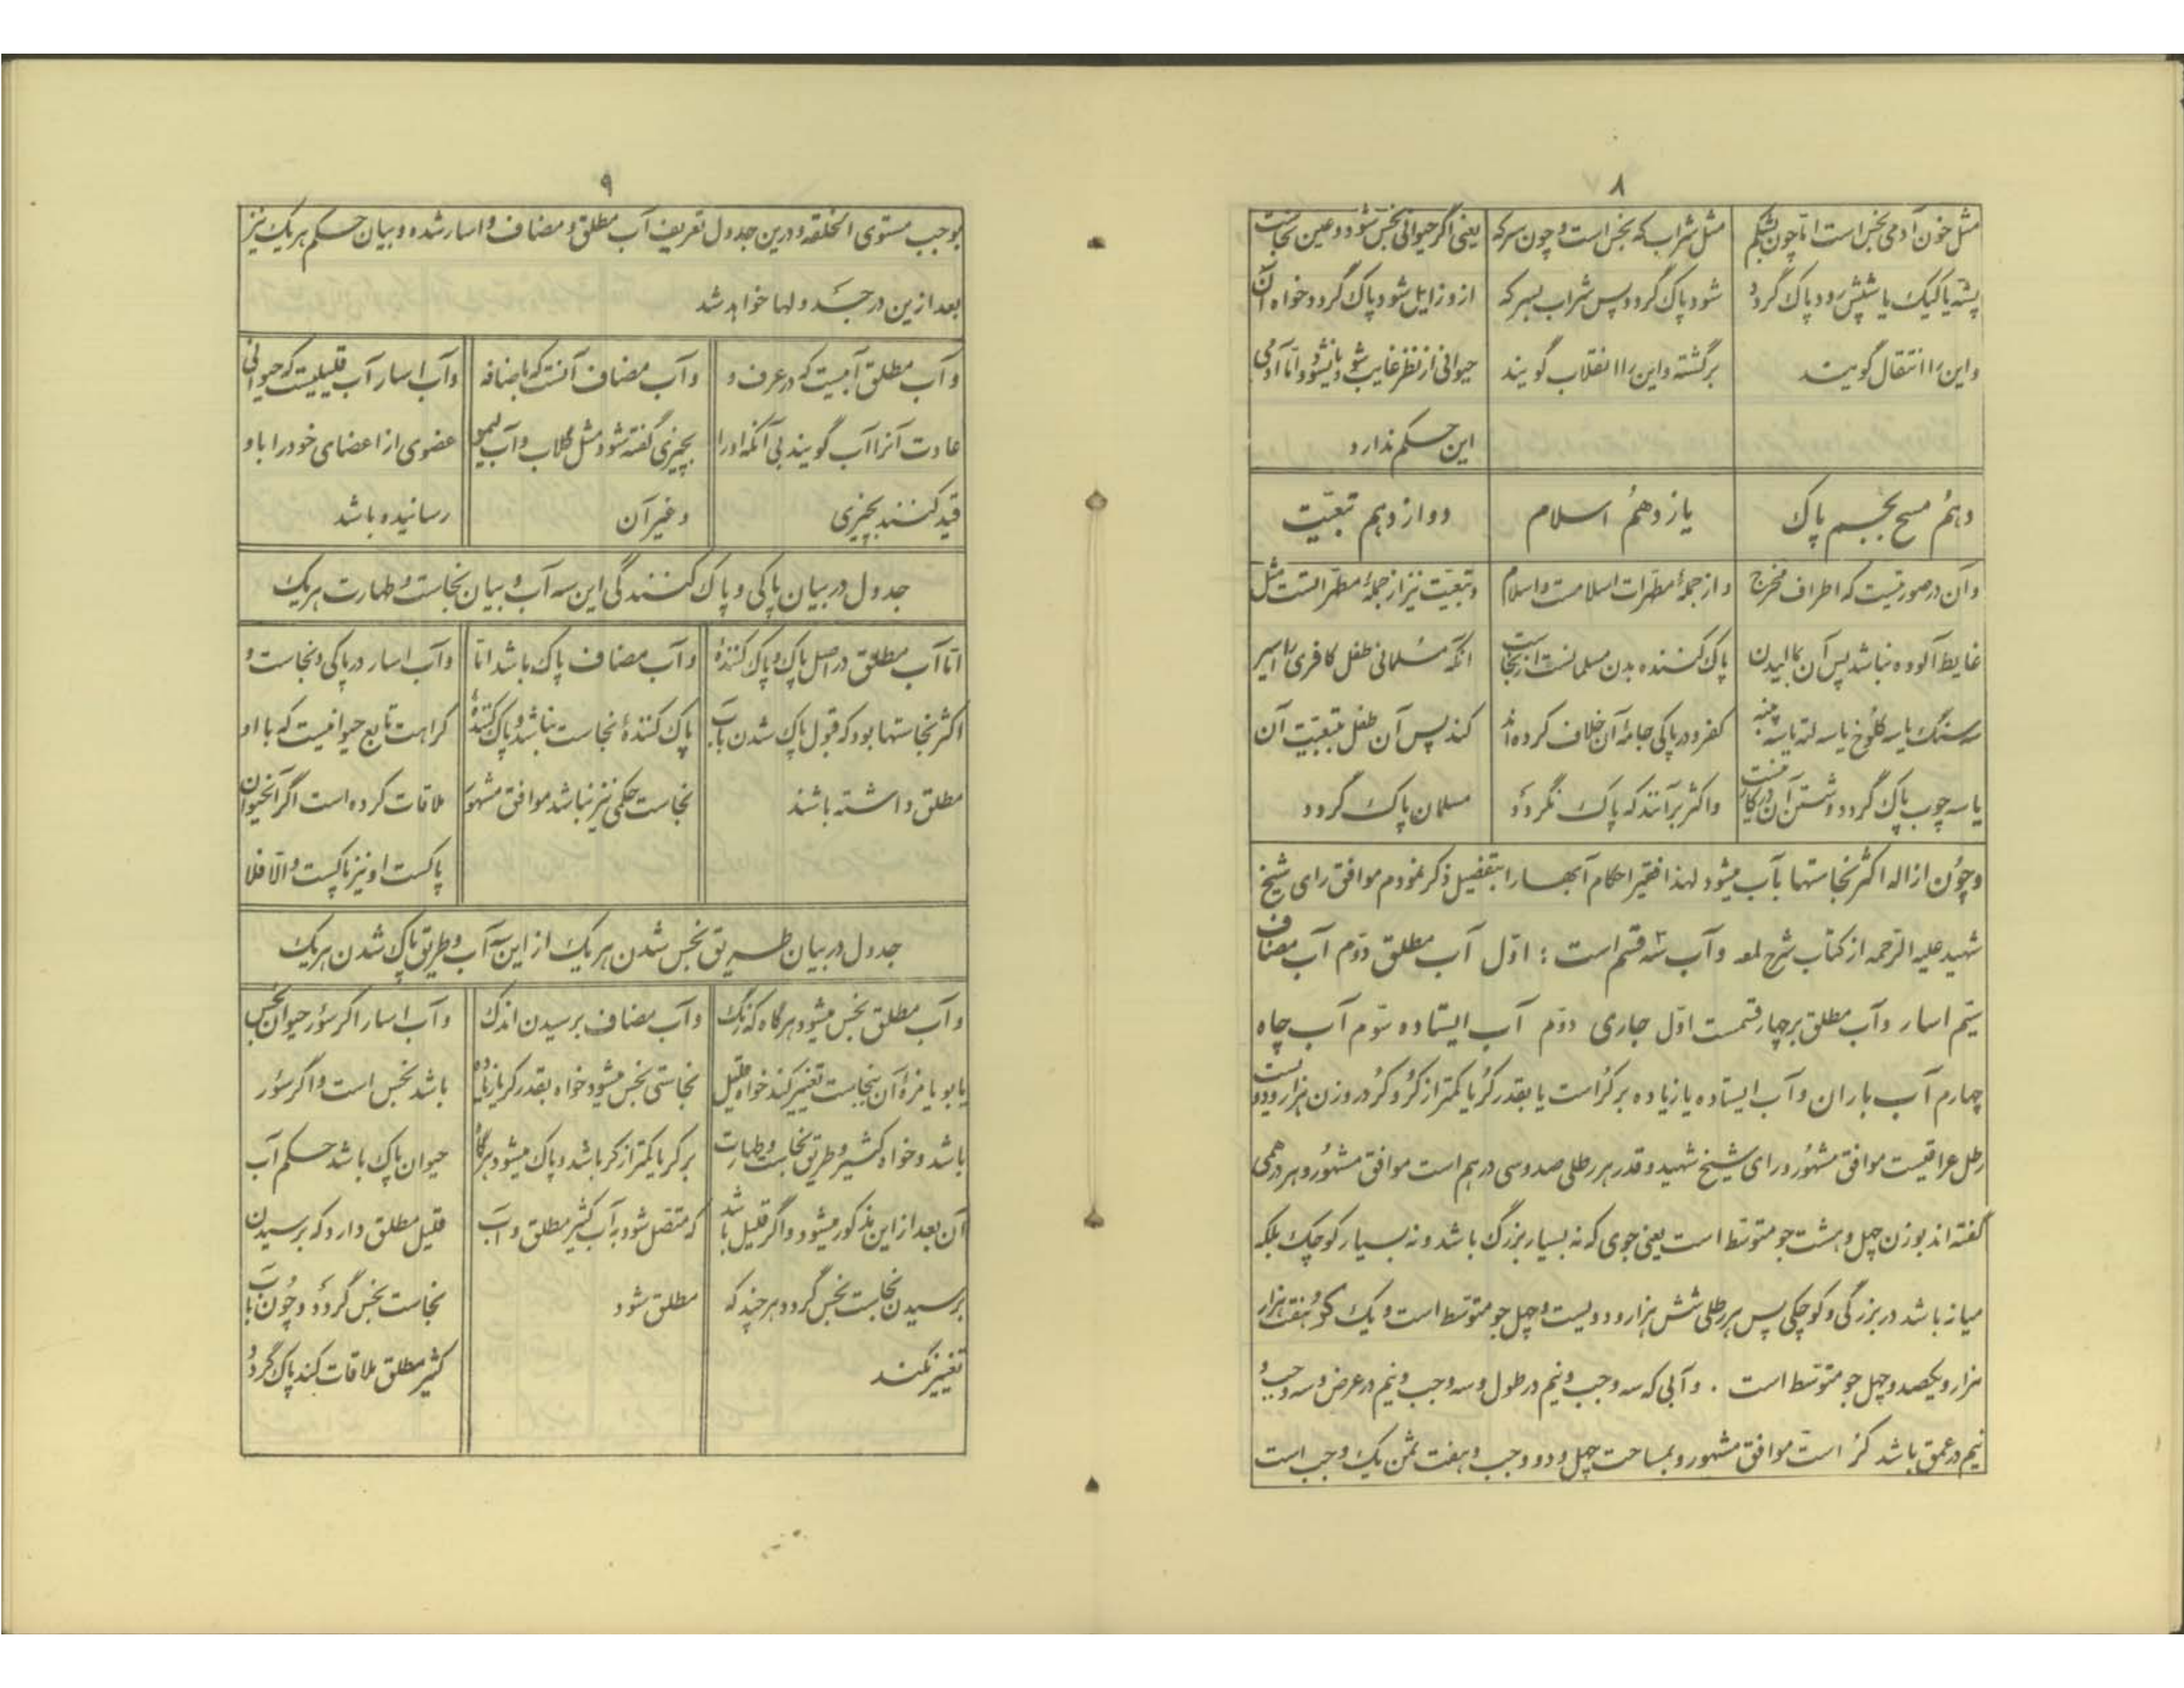 ۸
مثل خون آدمی نجس است امّا چون بشکم
پشه یا کیک یا شپش رود پاک گردد
و این را انتقال گویند
مثل شراب که نجس است و چون سرکه
شود پاک گردد پس شراب بسرکه
برگشته و این را انقلاب گویند
یعنی اگر حیوانی نجس شود و عین نجاست
ازو زایل شود پاک گردد خواه آن
حیوانی از نظر غایب شود یا نشود و امّا آدمی
این حکم ندارد
دهم مسح بجسم پاک
یازدهم اسلام
دوازدهم تبعیّت
و آن در صورتیست که اطراف مخرج
غایط آلوده نباشد پس آن بمالیدن
سه سنگ یا سه کلوخ یا سه لته یا سه پنبه
یا سه چوب پاک گردد و شستن آن در کار نیست
و از جمله مطهّرات اسلامست و اسلام
پاک کننده بدن مسلمانست از نجاست
کفر و در پاکی جامهٔ آن خلاف کرده‌اند
و اکثر برآنند که پاک نگردد
و تبعیّت نیز از جملهٔ مطهّراتست مثل
آنکه مسلمانی طفل کافری را اسیر
کند پس آن طفل بتبعیّت آن
مسلمان پاک گردد
و چون ازاله اکثر نجاستها بآب میشود لهذا فقیر احکام آبها را بتفصیل ذکر نمودم موافق رای شیخ
شهید علیه الرحمه از کتاب شرح لمعه و آب سه قسم است : اوّل آب مطلق دوّم آب مضاف
سیّم اسار و آب مطلق بر چهار قسمت اوّل جاری دوّم آب ایستاده سوّم آب چاه
چهارم آب باران و آب ایستاده یا زیاده بر کرُ است یا بقدر کرُ یا کمتر از کرُ و کرُ در وزن هزار و دویست
رطل عراقیست موافق مشهور و رای شیخ شهید و قدر هر رطلی صد و سی درهم است موافق مشهور و هر درهمی
گفته‌اند بوزن چهل و هشت جو متوسّط است یعنی جوی که نه بسیار بزرگ باشد و نه بسیار کوچک بلکه
میانه باشد در بزرگی و کوچکی پس هر رطلی شش هزار و دویست و چهل جو متوسّط است و یک کرُ هفت هزار
هزار و یکصد و چهل جو متوسّط است . و آبی که سه وجب و نیم در طول و سه وجب و نیم در عرض و سه وجب و
نیم در عمق باشد کرُ است موافق مشهور و بمساحت چهل و دو وجب و هفت ثمن یک وجب است
۹
بوجب مستوی الخلقه و درین جدول تعریف آب مطلق و مضاف و اسار شده و بیان حکم هر یک نیز
بعد ازین در جدولها خواهد شد
و آب مطلق آبیست که در عرف و
عادت آنرا آب گویند بی آنکه او را
قید کنند بچیزی
و آب مضاف آنست که باضافه
بچیزی گفته شود مثل گلاب و آب لیمو
و غیر آن
و آب اسار آب قلیلیست که حیوانی
عضوی از اعضای خود را باو
رسانیده باشد
جدول در بیان پاکی و پاک کنندگی این سه آب و بیان نجاست و طهارت هر یک
امّا آب مطلق در اصل پاک و پاک کنندهٔ
اکثر نجاستها بود که قبول پاک شدن بآب
مطلق داشته باشند
و آب مضاف پاک باشد امّا
پاک کنندهٔ نجاست نباشد و پاک کنندهٔ
نجاست حکمی نیز نباشد موافق مشهور
و آب اسار در پاکی و نجاست و
کراهت تابع حیوانیست که با او
ملاقات کرده است اگر آنحیوان
پاکست او نیز پاکست و الّا فلا
جدول در بیان طریق نجس شدن هر یک از این سه آب و طریق پاک شدن هر یک
و آب مطلق نجس میشود هر گاه که رنگ
یا بو یا مزهٔ آن بنجاست تغییر کند خواه قلیل
باشد و خواه کثیر و طریق نجاست و طهارت
آن بعد از این مذکور میشود و اگر قلیل باشد
برسیدن نجاست نجس گردد هر چند که
تغییر نکند
و آب مضاف برسیدن اندک
نجاستی نجس میشود خواه بقدر کر یا زیاده
بر کر یا کمتر از کر باشد و پاک میشود هر گاه
که متصل شود به آب کثیر مطلق و آب
مطلق شود
و آب اسار اگر سؤر حیوان نجس
باشد نجس است و اگر سؤر
حیوان پاک باشد حکم آب
قلیل مطلق دارد که برسیدن
نجاست نجس گردد و چون با آب
کثیر مطلق ملاقات کند پاک گردد